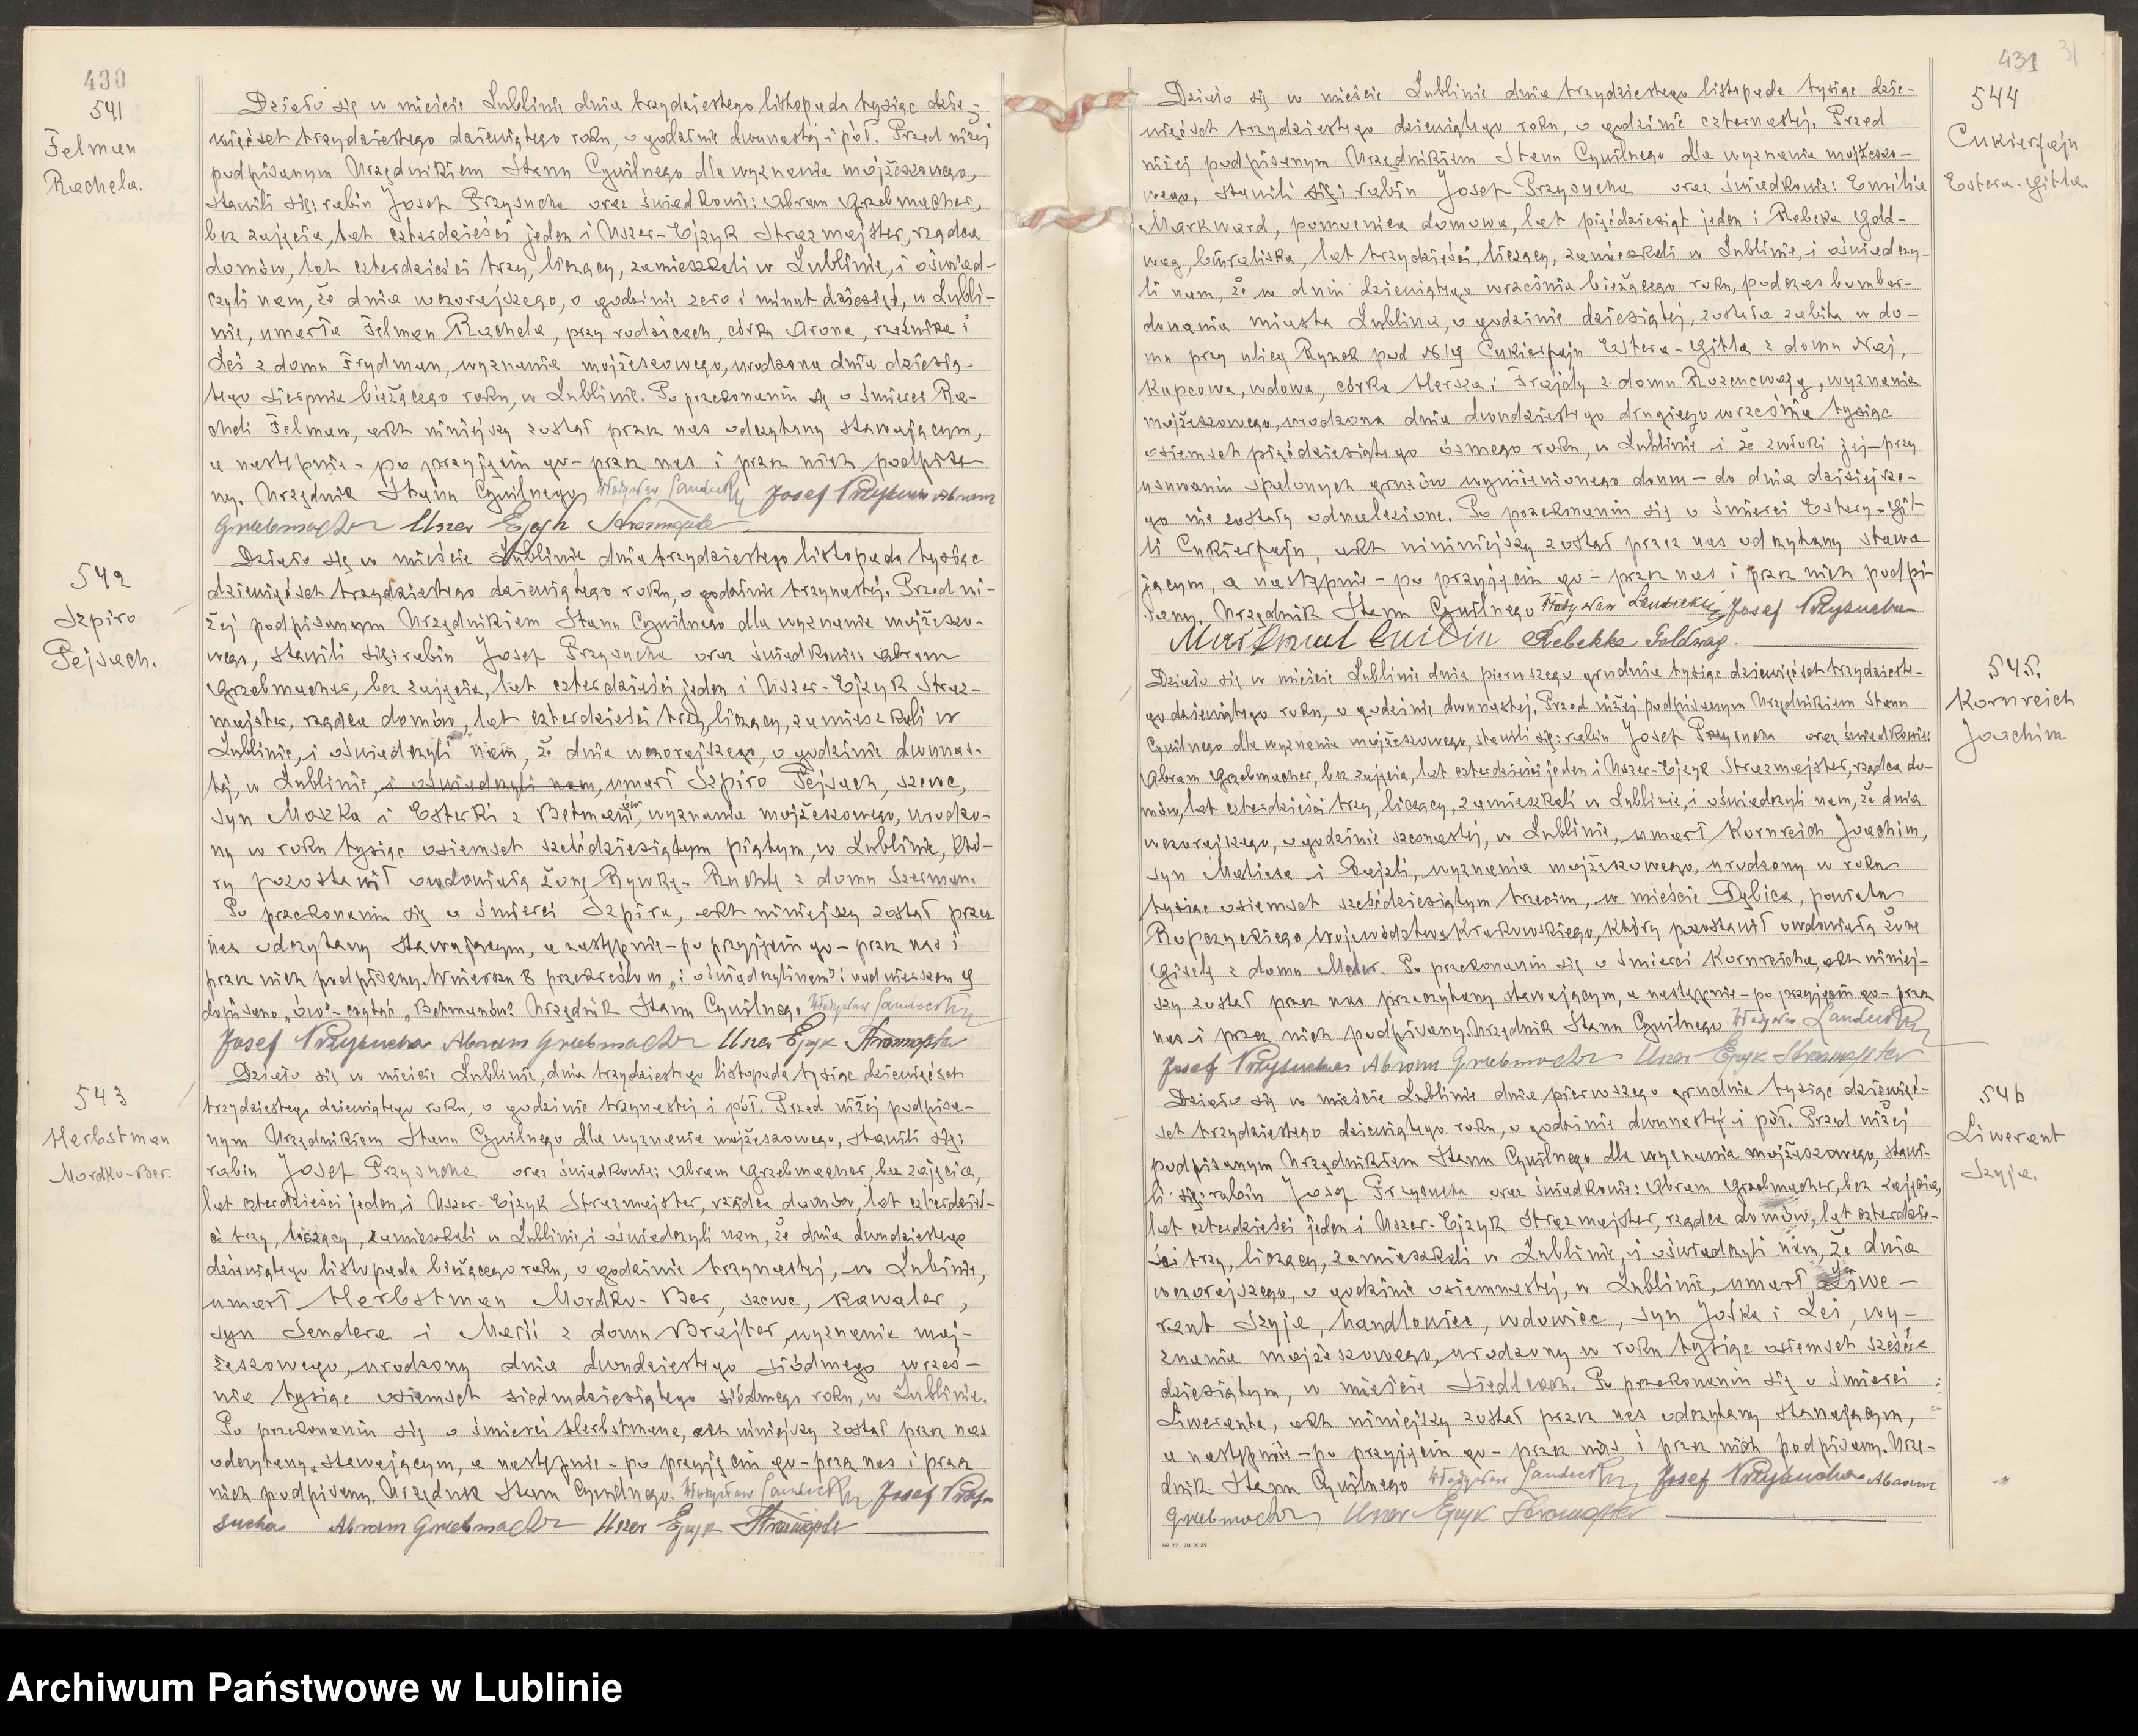 430
541
Felman
Rachela.
Działo się w mieście Lublinie dnia trzydziestego listopada tysiąc dzie-
więćset trzydziestego dziewiątego roku, o godzinie dwunastej i pół. Przed niżej
podpisanym Urzędnikiem Stanu Cywilnego dla wyznania mojżeszowego,
stawili się: rabin Josef Przysucha oraz świadkowie: Abram Grzebmacher,
bez zajęcia, lat czterdzieści jeden i Uszer-Ejzyk Strazmajster, rządca
domów, lat czterdzieści trzy, liczący, zamieszkali w Lublinie, i oświad-
czyli nam, że dnia wczorajszego, o godzinie zero i minut dziesięć, w Lubli-
nie, umarła Felman Rachela, przy rodzicach, córka Arona, rzeźnika i
Łei z domu Frydman, wyznania mojżeszowego, urodzona dnia dziesią-
tego sierpnia bieżącego roku, w Lublinie. Po przekonaniu się o śmierci Ra-
cheli Felman, akt niniejszy został przez nas odczytany stawającym,
a następnie - po przyjęciu go - przez nas i przez nich podpisa-
ny. Urzędnik Stanu Cywilnego Josef Przysucha Abram
Grzebmacher Uszer Ejzyk Strazmajster
542
Szpiro
Pejsach.
Działo się w mieście Lublinie dnia trzydziestego listopada tysiąc
dziewięćset trzydziestego dziewiątego roku, o godzinie trzynastej. Przed ni-
żej podpisanym Urzędnikiem Stanu Cywilnego dla wyznania mojżeszo-
wego, stawili się: rabin Josef Przysucha oraz świadkowie: Abram
Grzebmacher, bez zajęcia, lat czterdzieści jeden i Uszer-Ejzyk Straz-
majster, rządca domów, lat czterdzieści trzy, liczący, zamieszkali w
Lublinie, i oświadczyli nam, że dnia wczorajszego, o godzinie dwunas-
tej, w Lublinie, i oświadczyli nam, umarł Szpiro Pejsach, szewc,
syn Moszka i Esterki z Betmanów, wyznania mojżeszowego, urodzo-
ny w roku tysiąc osiemset sześćdziesiątym piątym, w Lublinie, któ-
ry pozostawił owdowiałą żonę Rywkę-Ruchlę z domu Szerman.
Po przekonaniu się o śmierci Szpira, akt niniejszy został przez
nas odczytany stawającym, a następnie - po przyjęciu go - przez nas i
przez nich podpisany. W wierszu 8 przekreślono „i oświadczyli nam" i nad wierszem 9
dopisano „ów" - czytać „Betmanów". Urzędnik Stanu Cywilnego
Josef Przysucha Abram Grzebmacher Uszer Ejzyk Strazmajster
543
Herbstman
Mordko-Ber.
Działo się w mieście Lublinie, dnia trzydziestego listopada tysiąc dziewięćset
trzydziestego dziewiątego roku, o godzinie trzynastej i pół. Przed niżej podpisa-
nym Urzędnikiem Stanu Cywilnego dla wyznania mojżeszowego, stawili się:
rabin Josef Przysucha oraz świadkowie: Abram Grzebmacher, bez zajęcia,
lat czterdzieści jeden, i Uszer-Ejzyk Strazmajster, rządca domów, lat czterdzieś-
ci trzy, liczący, zamieszkali w Lublinie, i oświadczyli nam, że dnia dwudziestego
dziewiątego listopada bieżącego roku, o godzinie trzynastej, w Lubinie,
umarł Herbstman Mordko-Ber, szewc, kawaler,
syn Sendera i Marii z domu Brajter, wyznania moj-
żeszowego, urodzony dnia dwudziestego siódmego wrześ-
nia tysiąc osiemset siedmdziesiątego siódmego roku, w Lublinie.
Po przekonaniu się o śmierci Herbstmana, akt niniejszy został przez nas
odczytany stawającym, a następnie - po przyjęciu go - przez nas i przez
nich podpisany. Urzędnik Stanu Cywilnego. Josef Przy-
sucha Abram Grzebmacher Uszer Ejzyk Strazmajster
431 31
544
Cukierfajn
Estera-Gitla.
Działo się w mieście Lublinie dnia trzydziestego listopada tysiąc dzie-
więćset trzydziestego dziewiątego roku, o godzinie czternastej. Przed
niżej podpisanym Urzędnikiem Stanu Cywilnego dla wyznania mojżeszo-
wego, stawili się: rabin Josef Przysucha oraz świadkowie: Emilia
Markward, pomocnica domowa, lat pięćdziesiąt jeden i Rebeka Gold-
wag, biuralistka, lat trzydzieści, liczący, zamieszkali w Lublinie, i oświadczy-
li nam, że w dniu dziewiątego września bieżącego roku, podczas bombar-
dowania miasta Lublina, o godzinie dziesiątej, została zabita w do-
mu przy ulicy Rynek pod №19 Cukierfajn Estera-Gitla z domu Naj,
kupcowa, wdowa, córka Herszka i Frajdy z domu Rozencwajg, wyznania
mojżeszowego, urodzona dnia dwudziestego drugiego września tysiąc
osiemset pięćdziesiątego ósmego roku, w Lublinie i że zwłoki jej - przy
usuwaniu spalonych gruzów wymienionego domu - do dnia dzisiejsze-
go nie zostały odnalezione. Po przekonaniu się o śmierci Estery-Git-
li Cukierfajn, akt nininiejszy został przez nas odczytany stawa-
jącym, a następnie - po przyjęciu go - przez nas i przez nich podpi-
sany. Urzędnik Stanu Cywilnego Josef Przysucha
Markward Emilia Rebekka Goldwag.
545.
Kornreich
Joachim
Działo się w mieście Lublinie dnia pierwszego grudnia tysiąc dziewięćset trzydzieste-
go dziewiątego roku, o godzinie dwunastej. Przed niżej podpisanym Urzędnikiem Stanu
Cywilnego dla wyznania mojżeszowego, stawili się: rabin Josef Przysucha oraz świadkowie:
Abram Grzebmacher, bez zajęcia, lat czterdzieści jeden i Uszer-Ejzyk Strazmajster, rządca do-
mów, lat czterdzieści trzy, liczący, zamieszkali w Lublinie, i oświadczyli nam, że dnia
wczorajszego, o godzinie szesnastej, w Lublinie, umarł Kornreich Joachim,
syn Matiasa i Rajzli, wyznania mojżeszowego, urodzony w roku
tysiąc osiemset sześćdziesiątym trzecim, w mieście Dębica, powiatu
Ropczyckiego, województwa Krakowskiego, który pozostawił owdowiałą żonę
Gizelę z domu Meler. Po przekonaniu się o śmierci Kornreicha, akt niniej-
szy został przez nas przeczytany stawającym, a następnie - po przyjęciu go - przez
nas i przez nich podpisany. Urzędnik Stanu Cywilnego
Josef Przysucha Abram Grzebmacher Uszer Ejzyk Strazmajster
546
Liwerant
Szyja.
Działo się w mieście Lublinie dnia pierwszego grudnia tysiąc dziewięć-
set trzydziestego dziewiątego roku, o godzinie dwunastej i pół. Przed niżej
podpisanym Urzędnikiem Stanu Cywilnego dla wyznania mojżeszowego, stawi-
li się: rabin Josef Przysucha oraz świadkowie: Abram Grzebmacher, bez zajęcia,
lat czterdzieści jeden i Uszer-Ejzyk Strazmajster, rządca domów, lat czterdzie-
ści trzy, liczący, zamieszkali w Lublinie, i oświadczyli nam, że dnia
wczorajszego, o godzinie osiemnastej, w Lublinie, umarł Liwe-
rant Szyja, handlowiec, wdowiec, syn Jośka i Łei, wy-
znania mojżeszowego, urodzony w roku tysiąc osiemset sześć-
dziesiątym, w mieście Siedlcach. Po przekonaniu się o śmierci
Liweranta, akt niniejszy został przez nas odczytany stawającym,
a następnie - po przyjęciu go - przez nas i przez nich podpisany. Urzę-
dnik Stanu Cywilnego Josef Przysucha Abram
Grzebmacher Uszer Ejzyk Strazmajster
NR 77. 70 X 39
Archiwum Państwowe w Lublinie